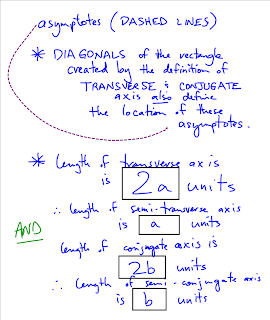 asymptotes (DASHED LINES)
* DIAGONALS of the rectangle
created by the definition of
TRANSVERSE & CONJUGATE
axis also define
the location of these
asymptotes.
* length of transverse axis
is 2a units
∴ length of semi-transverse axis
is a units
AND
length of conjugate axis is
2b units
∴ length of semi-conjugate axis
is b units